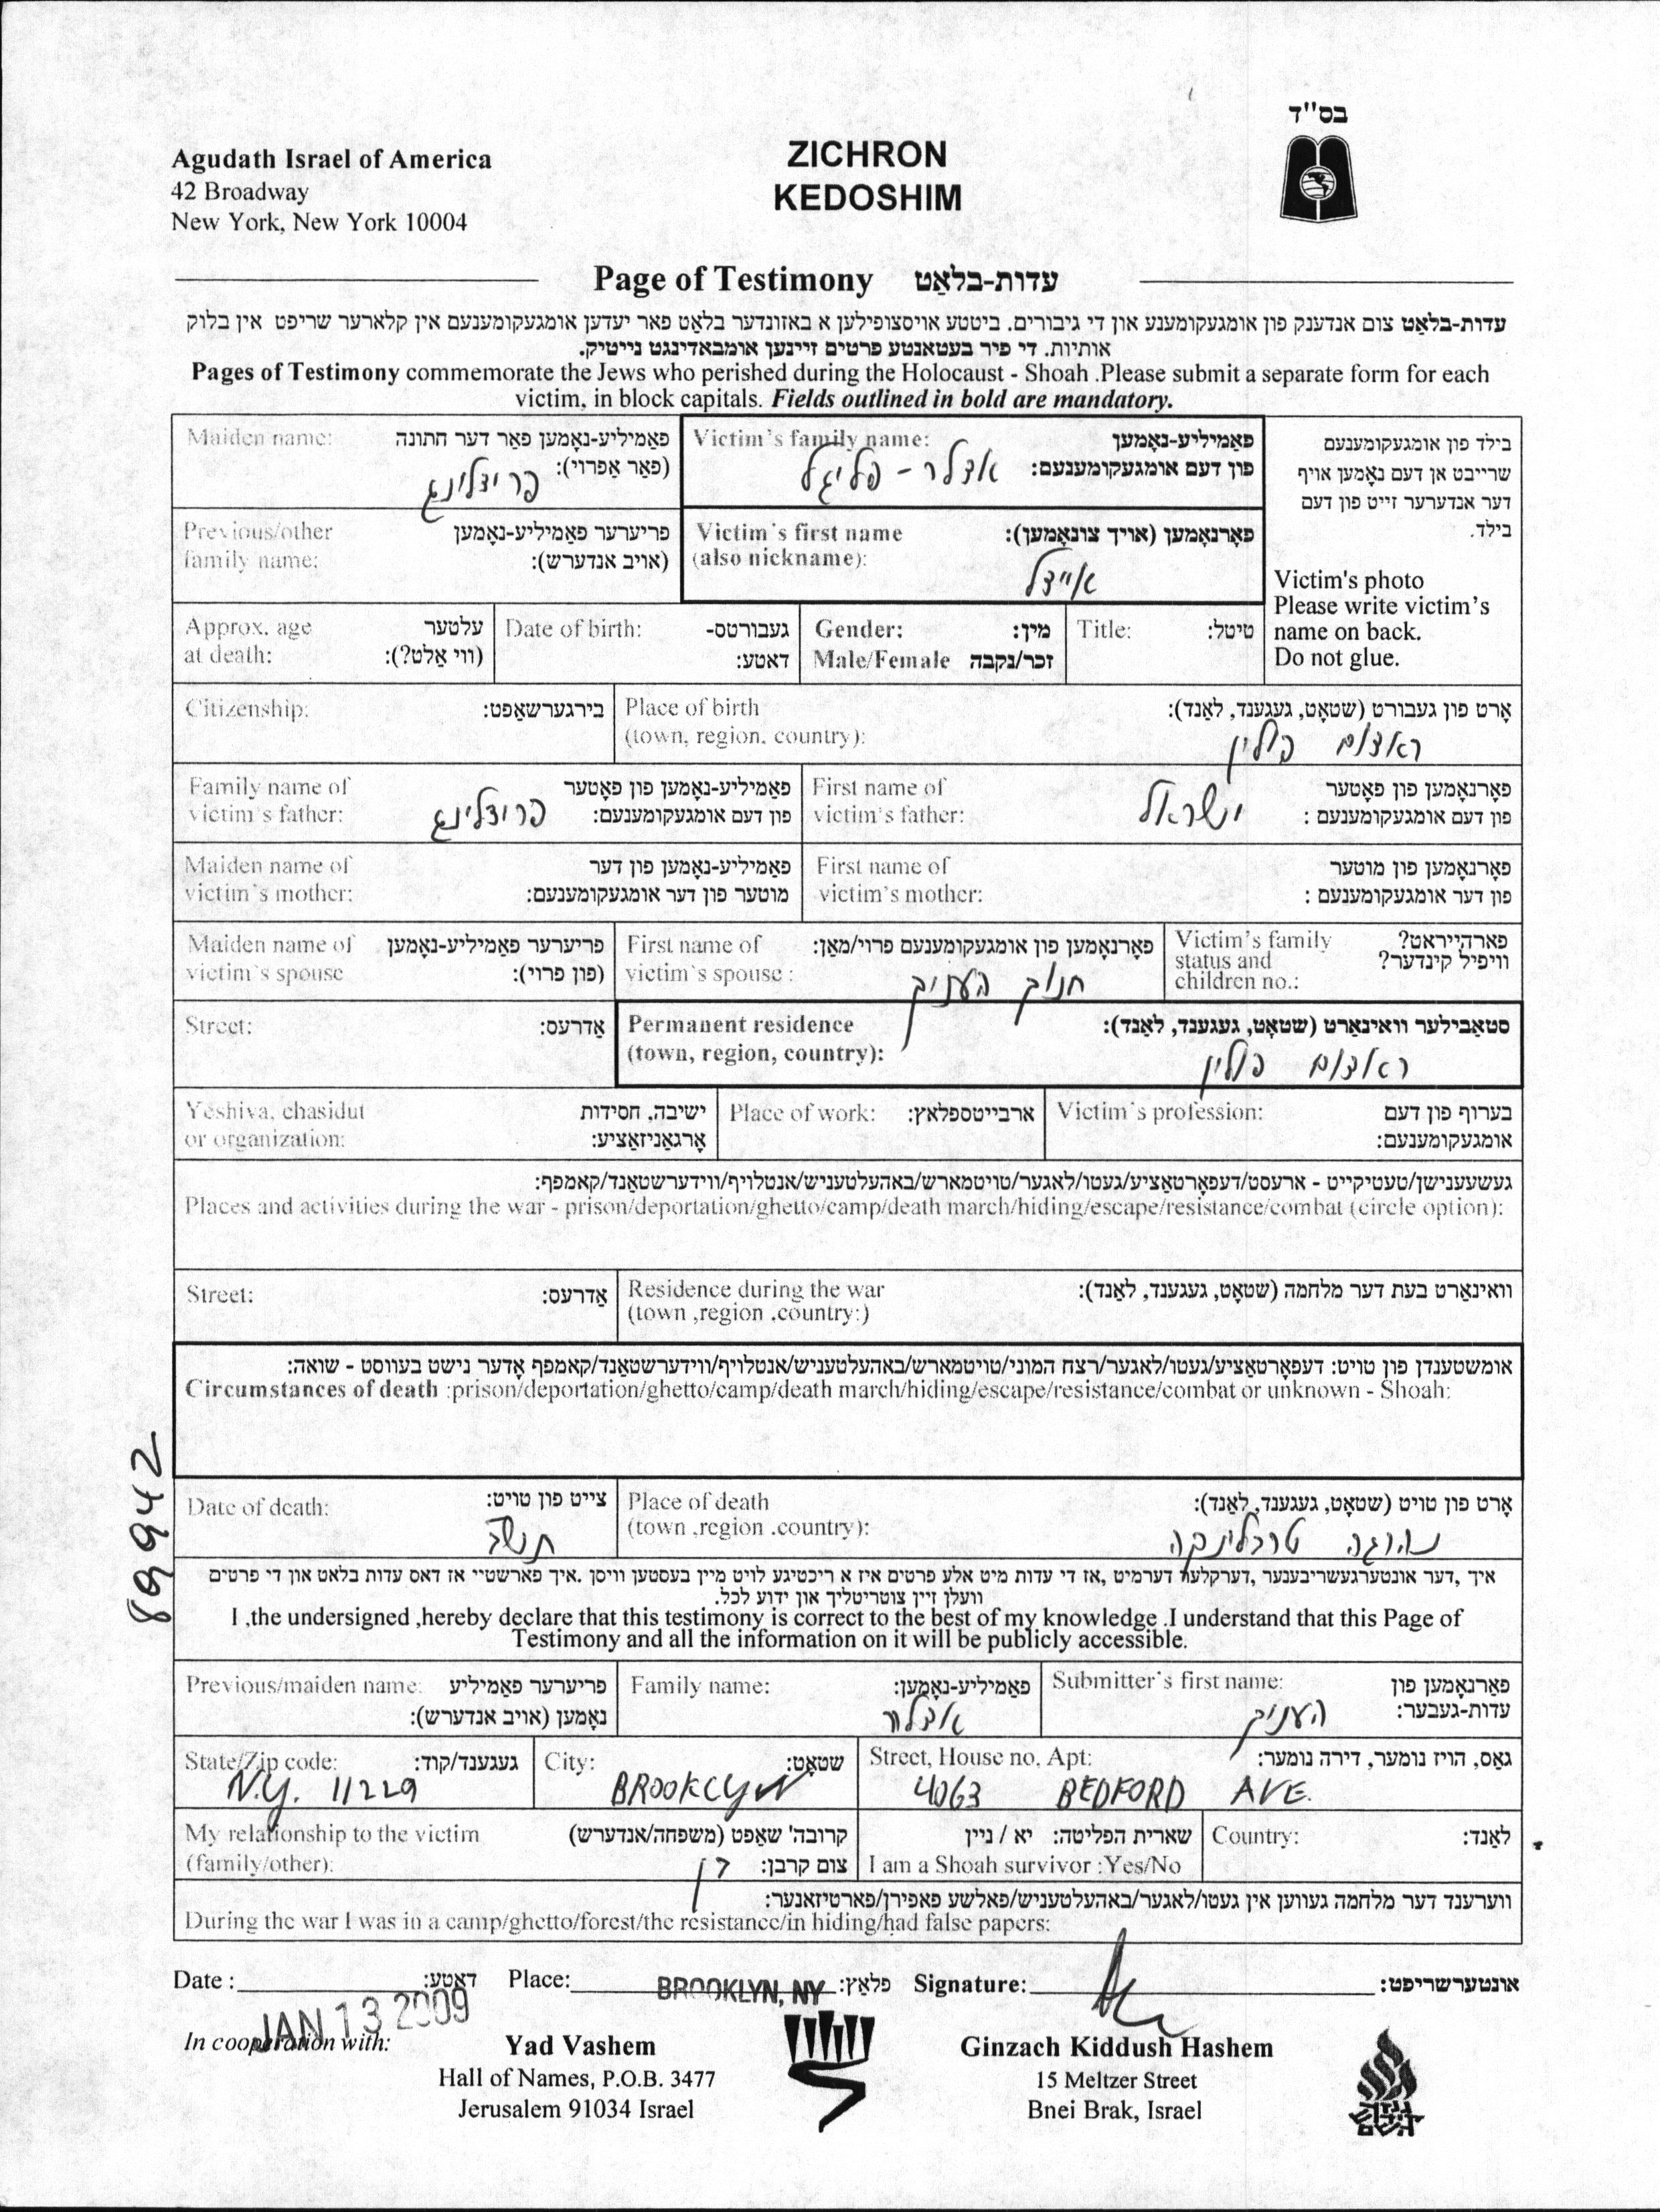 בס"ד
Agudath Israel of America
42 Broadway
New York, New York 10004
ZICHRON
KEDOSHIM
Page of Testimony עדות-בלאַט
עדות-בלאַט צום אנדענק פון אומגעקומענע און די גיבורים. ביטטע אויסצופילען א באזונדער בלאַט פאר יעדען אומגעקומענעם אין קלארער שריפט אין בלוק
אותיות. די פיר בעטאנטע פרטים זיינען אומבאדינגט נייטיק.
Pages of Testimony commemorate the Jews who perished during the Holocaust - Shoah .Please submit a separate form for each
victim, in block capitals. Fields outlined in bold are mandatory.
Maiden name: פאַמיליע-נאָמען פאַר דער חתונה
(פאַר אַפרוי): פרידלינג
Victim's family name: פאַמיליע-נאָמען
פון דעם אומגעקומענעם: אדלר - פליגל
בילד פון אומגעקומענעם
שרייבט אן דעם נאָמען אויף
דער אנדערער זייט פון דעם
בילד.
Victim's photo
Please write victim's
name on back.
Do not glue.
Previous/other פריערער פאַמיליע-נאָמען
family name: (אויב אנדערש):
Victim's first name פאָרנאָמען (אויך צונאָמען):
(also nickname): איידל
Approx. age עלטער
at death: (ווי אַלט?):
Date of birth: געבורטס-
דאטע:
Gender: מין:
Male/Female זכר/נקבה
Title: טיטל:
Citizenship: בירגערשאַפט:
Place of birth אָרט פון געבורט (שטאָט, געגענד, לאַנד):
(town, region, country): ראדום פולין
Family name of פאַמיליע-נאָמען פון פאָטער
victim's father: פון דעם אומגעקומענעם: פרידלינג
First name of פאָרנאָמען פון פאָטער
victim's father: פון דעם אומגעקומענעם : ישראל
Maiden name of פאַמיליע-נאָמען פון דער
victim's mother: מוטער פון דער אומגעקומענעם:
First name of פאָרנאָמען פון מוטער
victim's mother: פון דער אומגעקומענעם :
Maiden name of פריערער פאַמיליע-נאָמען
victim's spouse (פון פרוי):
First name of פאָרנאָמען פון אומגעקומענעם פרוי/מאַן:
victim's spouse : חנוך העניך
Victim's family פארהייראט?
status and וויפיל קינדער?
children no.:
Street: אַדרעס:
Permanent residence סטאַבילער וואינאָרט (שטאָט, געגענד, לאַנד):
(town, region, country): ראדום פולין
Yeshiva, chasidut ישיבה, חסידות
or organization: אָרגאַניזאַציע:
Place of work: ארבייטספלאץ:
Victim's profession: בערוף פון דעם
אומגעקומענעם:
געשעענישן/טעטיקייט - ארעסט/דעפאָרטאַציע/געטו/לאגער/טויטמארש/באהעלטעניש/אנטלויף/ווידערשטאַנד/קאמפף:
Places and activities during the war - prison/deportation/ghetto/camp/death march/hiding/escape/resistance/combat (circle option):
Street: אַדרעס:
Residence during the war וואינאָרט בעת דער מלחמה (שטאָט, געגענד, לאַנד):
(town ,region .country:)
אומשטענדן פון טויט: דעפאָרטאַציע/געטו/לאגער/רצח המוני/טויטמארש/באהעלטעניש/אנטלויף/ווידערשטאַנד/קאמפף אָדער נישט בעוווסט - שואה:
Circumstances of death :prison/deportation/ghetto/camp/death march/hiding/escape/resistance/combat or unknown - Shoah:
89942
Date of death: צייט פון טויט:
תש"ב
Place of death אָרט פון טויט (שטאָט, געגענד, לאַנד):
(town ,region .country): נהרגה טרבלינקה
איך ,דער אונטערגעשריבענער ,דערקלער דערמיט ,אז די עדות מיט אלע פרטים איז א ריכטיגע לויט מיין בעסטען וויסן .איך פארשטיי אז דאס עדות בלאט און די פרטים
וועלן זיין צוטריטליך און ידוע לכל.
I ,the undersigned ,hereby declare that this testimony is correct to the best of my knowledge .I understand that this Page of
Testimony and all the information on it will be publicly accessible.
Previous/maiden name: פריערער פאַמיליע
נאָמען (אויב אנדערש):
Family name: פאַמיליע-נאָמען:
אדלר
Submitter's first name: פאָרנאָמען פון
עדות-געבער: העניך
State/Zip code: געגענד/קוד:
N.Y. 11229
City: שטאָט:
BROOKLYN
Street, House no, Apt: גאַס, הויז נומער, דירה נומער:
4063 BEDFORD AVE.
My relationship to the victim קרובה' שאַפט (משפחה/אנדערש)
(family/other): צום קרבן: בן
שארית הפליטה: יא / ניין
I am a Shoah survivor :Yes/No
Country: לאַנד:
ווערענד דער מלחמה געווען אין געטו/לאגער/באהעלטעניש/פאלשע פאפירן/פארטיזאנער:
During the war I was in a camp/ghetto/forest/the resistance/in hiding/had false papers:
Date : דאַטע: Place: BROOKLYN, NY פלאַץ: Signature: אונטערשריפט:
JAN 13 2009
In cooperation with:
Yad Vashem
Hall of Names, P.O.B. 3477
Jerusalem 91034 Israel
Ginzach Kiddush Hashem
15 Meltzer Street
Bnei Brak, Israel